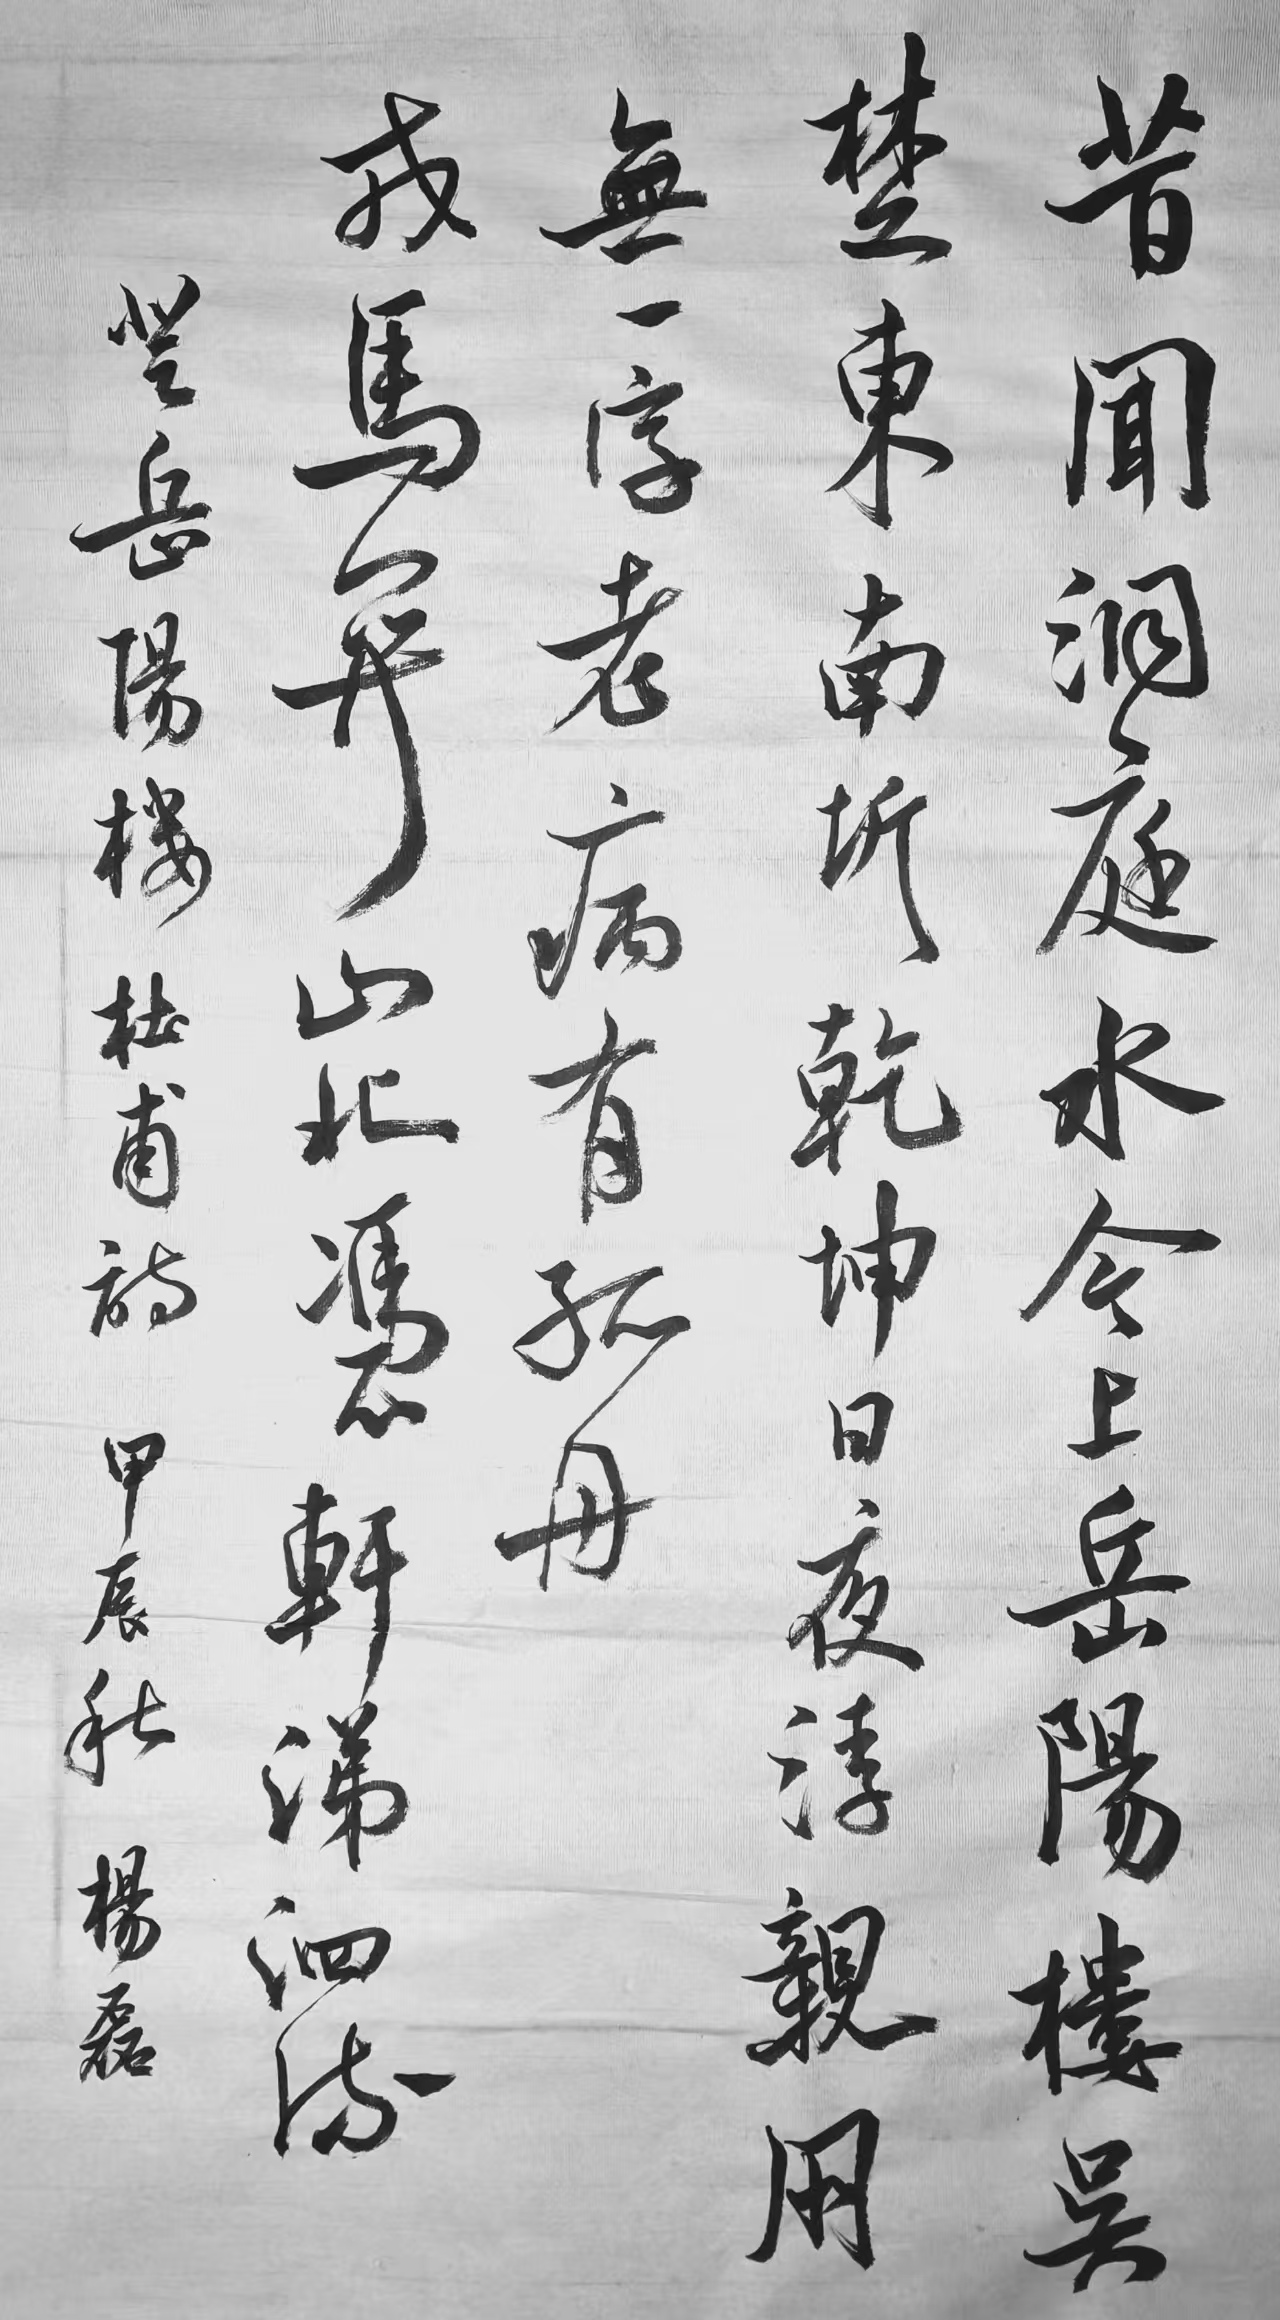 昔聞洞庭水今上岳陽樓吳
楚東南坼乾坤日夜浮親朋
無一字老病有孤舟
戎馬關山北憑軒涕泗流
登岳陽樓 杜甫詩 甲辰秋 楊磊